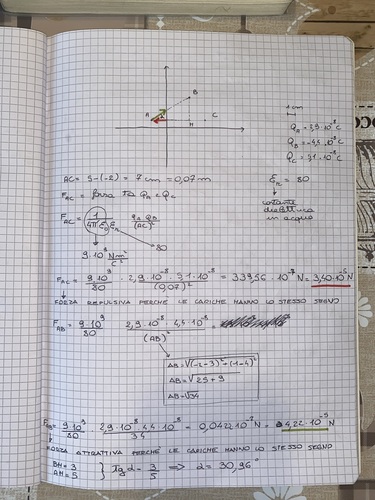 A
B
H
C
1 cm
Q_A = 2,9·10⁻⁸ C
Q_B = -4,4·10⁻⁸ C
Q_C = 9,1·10⁻⁸ C
AC = 5-(-2) = 7 cm = 0,07 m
ε_r = 80
F_AC = forza tra Q_A e Q_C
costante dielettrica in acqua
F_AC = 1/(4π ε₀ ε_r) q_A q_B/(AC)²
80
9·10⁹ Nm²/C²
F_AC = 9·10⁹/80 · 2,9·10⁻⁸ · 9,1·10⁻⁸/(0,07)² = 339,56·10⁻⁷ N = 3,40·10⁻⁵ N
FORZA REPULSIVA PERCHÉ LE CARICHE HANNO LO STESSO SEGNO
F_AB = 9·10⁹/80 2,9·10⁻⁸ · 4,4·10⁻⁸/(AB)² =
AB = √(-2-3)²+(1-4)²
AB = √25+9
AB = √34
F_AB = 9·10⁹/80 2,9·10⁻⁸ 4,4·10⁻⁸/34 = 0,0422·10⁻⁷ N = 4,22·10⁻⁵ N
FORZA ATTRATTIVA PERCHÉ LE CARICHE HANNO LO STESSO SEGNO
BH = 3
AH = 5
tg α = 3/5 => α = 30,96°